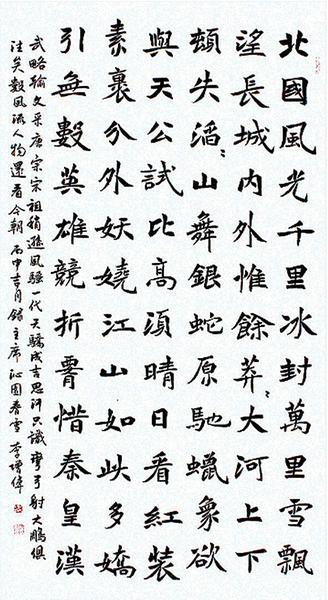 北國風光千里冰封萬里雪飄
望長城內外惟餘莽〻大河上下
頓失滔〻山舞銀蛇原馳蠟象欲
與天公試比高須晴日看紅裝
素裹分外妖嬈江山如此多嬌
引無數英雄競折惜秦皇漢
武略輸文采唐宗宋祖稍遜風騷一代天驕成吉思汗只識彎弓射大鵰俱
往矣數風流人物還看今朝 丙申吉月錄主席沁園春雪 李增偉